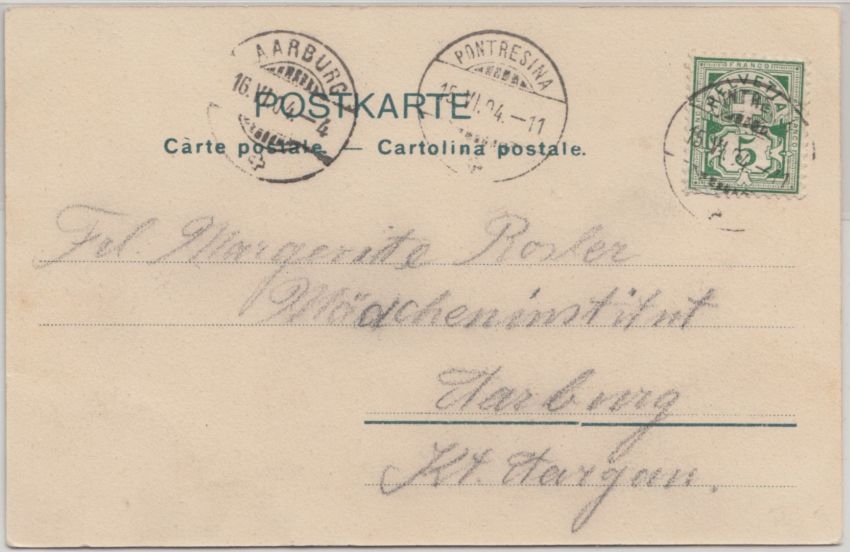 AARBURG
16.VI.04.–4
PONTRESINA
15.VI.04.–11
FRANCO
HELVETIA
5
POSTKARTE
Carte postale. — Cartolina postale.
Frl. Margeritte Rosler
Mädcheninstitut
Aarburg
Kt. Aargau.